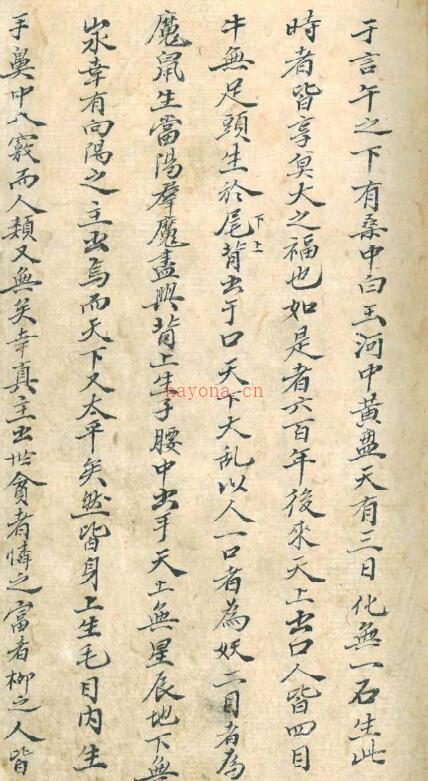 于言午之下有桑中白玉河中黃盘天有三日化無一石生此
時者皆享莫大之福也如是者六百年後來天上出口人皆四目
牛無足頭生於尾背出于口天下大乱以人一口者為妖二目者為
下上
魔鼠生當陽群魔盡興背上生子腰中出手天上無星辰地下無
山永幸有向陽之主出焉而天下又太平矣然皆身上生毛目内生
手鼻中八竅而人類又無矣幸真主出世貧者憐之富者柳之人皆
hayona.cn